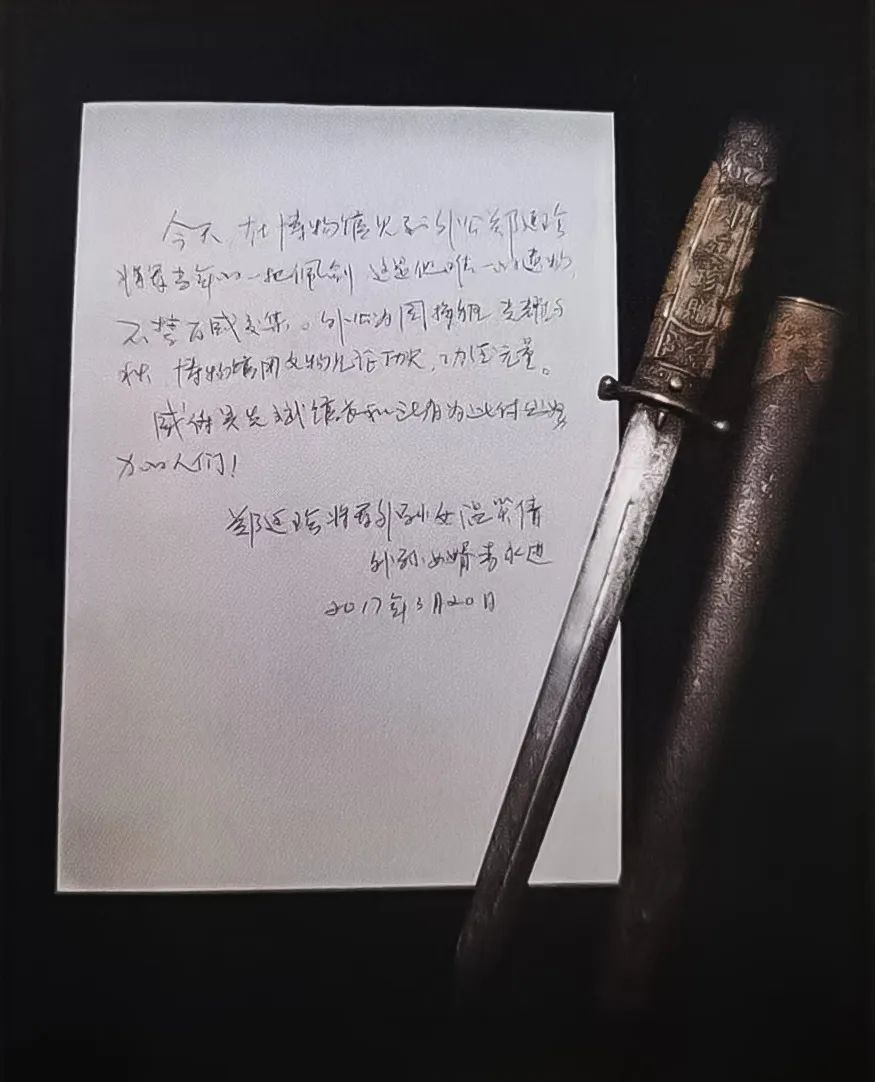 今天在博物馆见到外公郑廷珍
将军当年的一把佩剑 这是他唯一的遗物,
不禁百感交集。外公为国捐躯 光耀千
秋 博物馆用文物见证历史,功德无量。
感谢吴先斌馆长和所有为此付出努
力的人们!
郑廷珍将军外孙女温笑倩
外孙女婿李永进
2017年3月20日